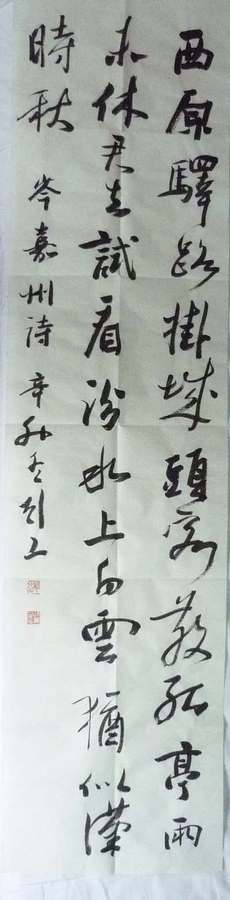 西原驛路掛城頭客散紅亭雨
未休君去試看汾水上白雲猶似漢
時秋 岑嘉州詩